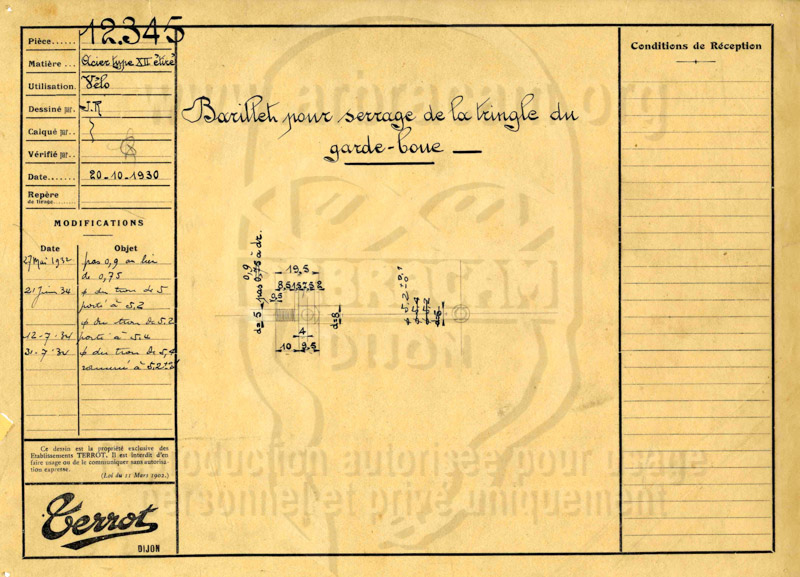 Pièce...... 12.345
Matière ... Acier type XII étiré
Utilisation. Vélo
Dessiné par. J.R
Calqué par.. }
Vérifié par..
Date....... 20-10-1930
Repère
de tirage
MODIFICATIONS
Date Objet
27 Mai 1932 pas 0,9 au lieu
de 0,75
21 Juin 34 φ du trou de 5
porté à 5.2
φ du trou de 5.2
12-7-34 porté à 5.4
31-7-34 φ du trou de 5,4
ramené à 5.2
Ce dessin est la propriété exclusive des
Etablissements TERROT. Il est interdit d'en
faire usage ou de le communiquer sans autorisa-
tion expresse.
(Loi du 11 Mars 1902.)
Terrot
DIJON
Barillet pour serrage de la tringle du
garde-boue
0,9
pas 0,75 à dr.
19,5
9,5
d=5
d=8
4
10 9,5
φ 5.2
φ 5.4
φ 5.2
d=8
Conditions de Réception
www.arbracam.org
ARBRACAM
DIJON
Reproduction autorisée pour usage
personnel et privé uniquement